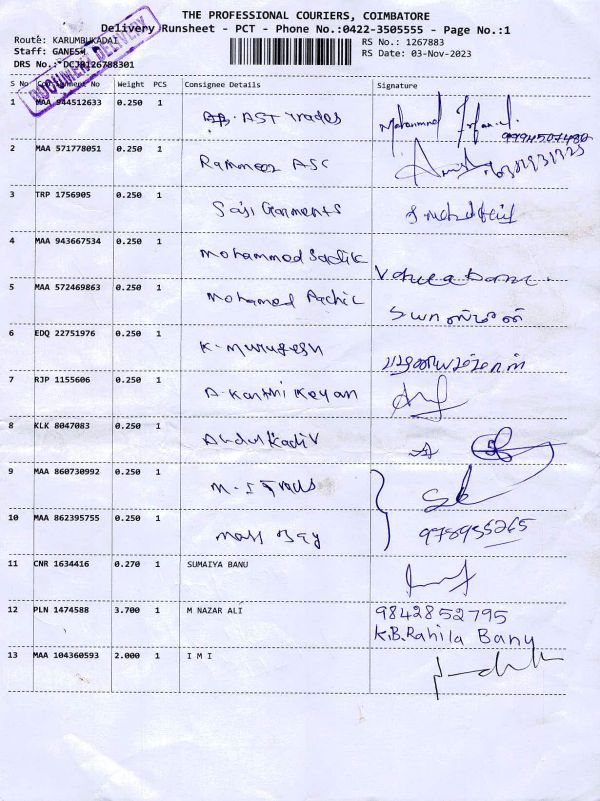 THE PROFESSIONAL COURIERS, COIMBATORE
Delivery Runsheet - PCT - Phone No.:0422-3505555 - Page No.:1
Route: KARUMBUKADAI
RS No.: 1267883
Staff: GANESH
RS Date: 03-Nov-2023
DRS No.: DCJB126788301
DOCUMENT DELIVERY
S No Consignment No Weight PCS Consignee Details Signature
1 MAA 944512633 0.250 1 AST Trades Mohammed
2 MAA 571778051 0.250 1 ASC
3 TRP 1756905 0.250 1 Saji Garments
4 MAA 943667534 0.250 1 Mohammed Sadik
5 MAA 572469863 0.250 1 Mohamed
6 EDQ 22751976 0.250 1 K. Murugesh
7 RJP 1155606 0.250 1 A. Karthi Keyan
8 KLK 8047083 0.250 1 Abdul Kadir
9 MAA 860730992 0.250 1
10 MAA 862395755 0.250 1
11 CNR 1634416 0.270 1 SUMAIYA BANU
12 PLN 1474588 3.700 1 M NAZAR ALI 9842852795
K.B.Rahila Banu
13 MAA 104360593 2.000 1 I M I